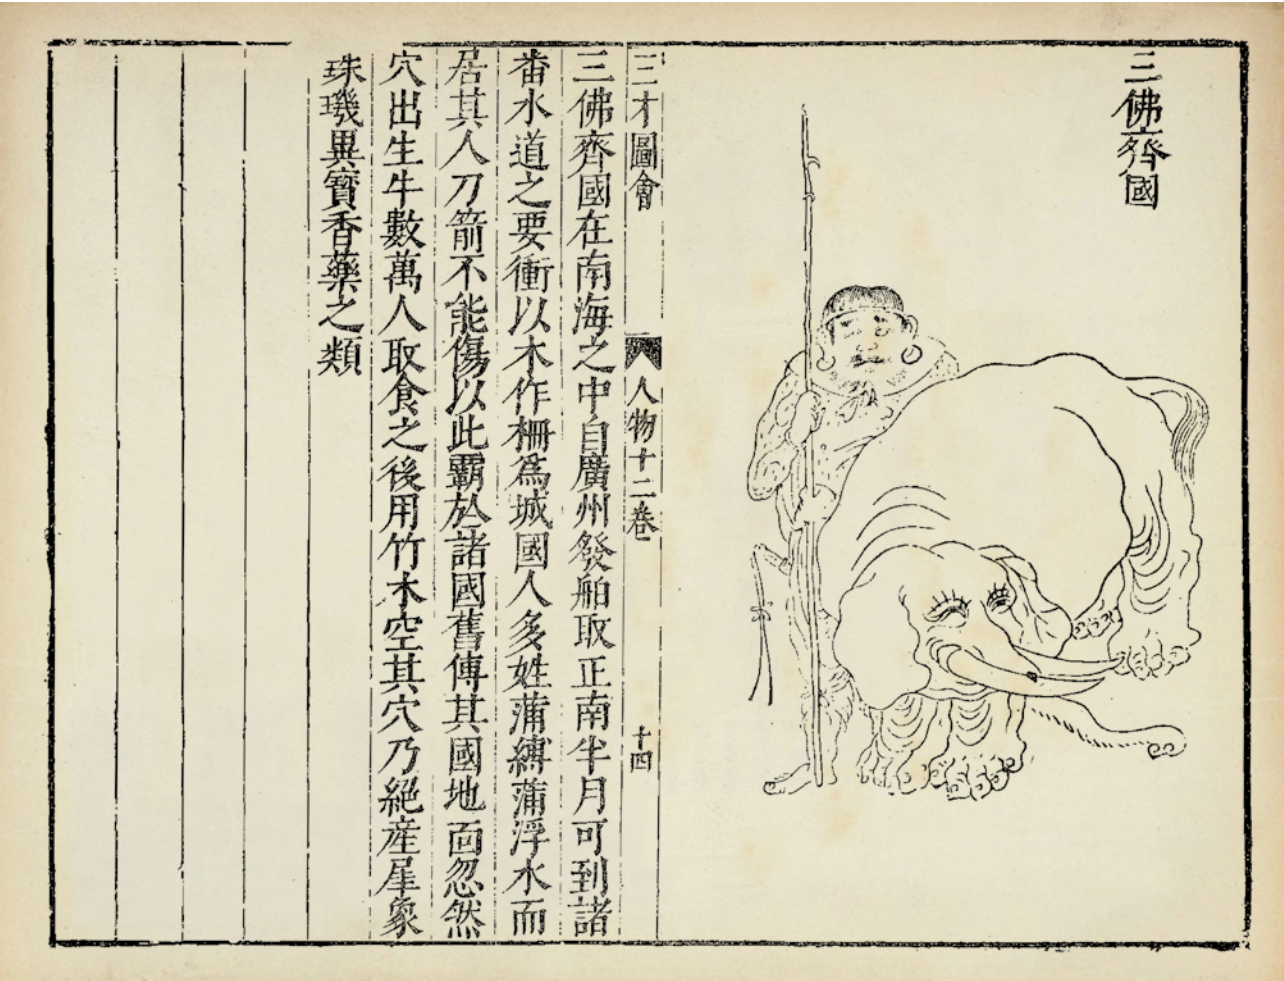 三佛齊國
三才圖會
人物十二卷
十四
三佛齊國在南海之中自廣州發舶取正南半月可到諸
畨水道之要衝以木作柵爲城國人多姓蒲縛蒲浮水而
居其人刀箭不能傷以此霸於諸國舊傳其國地面忽然
穴出生牛數萬人取食之後用竹木空其穴乃絕產犀象
珠璣異寶香藥之類